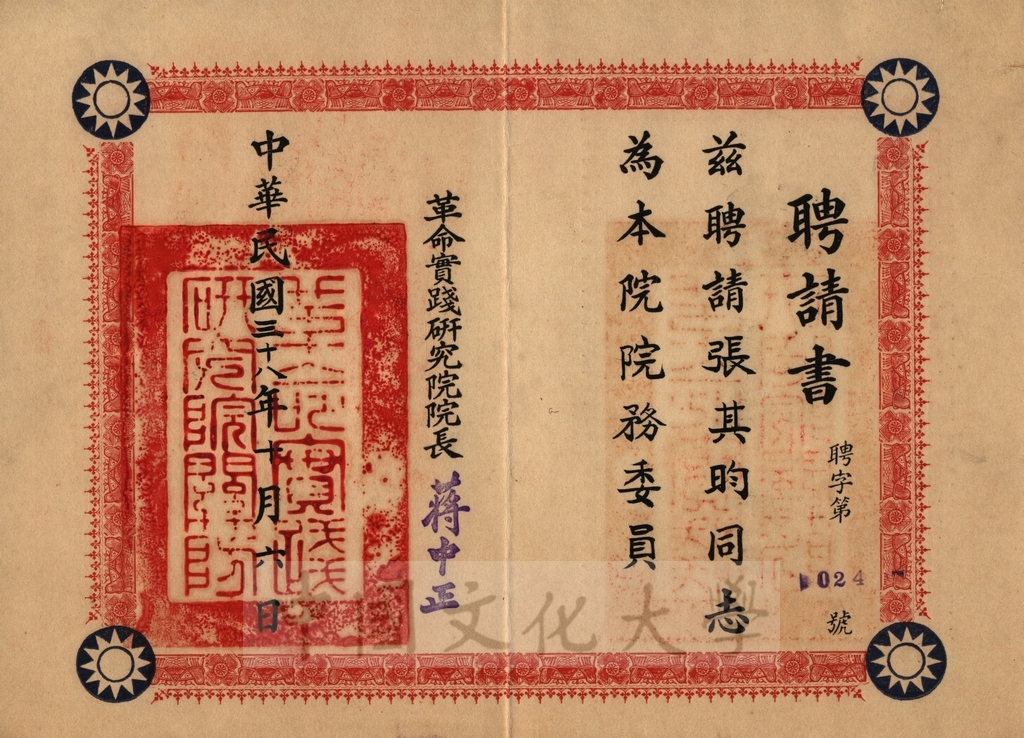 聘請書
聘字第
024
號
茲聘請張其昀同志
為本院院務委員
革命實踐研究院院長
蔣中正
中華民國三十八年十月六日
中國文化大學